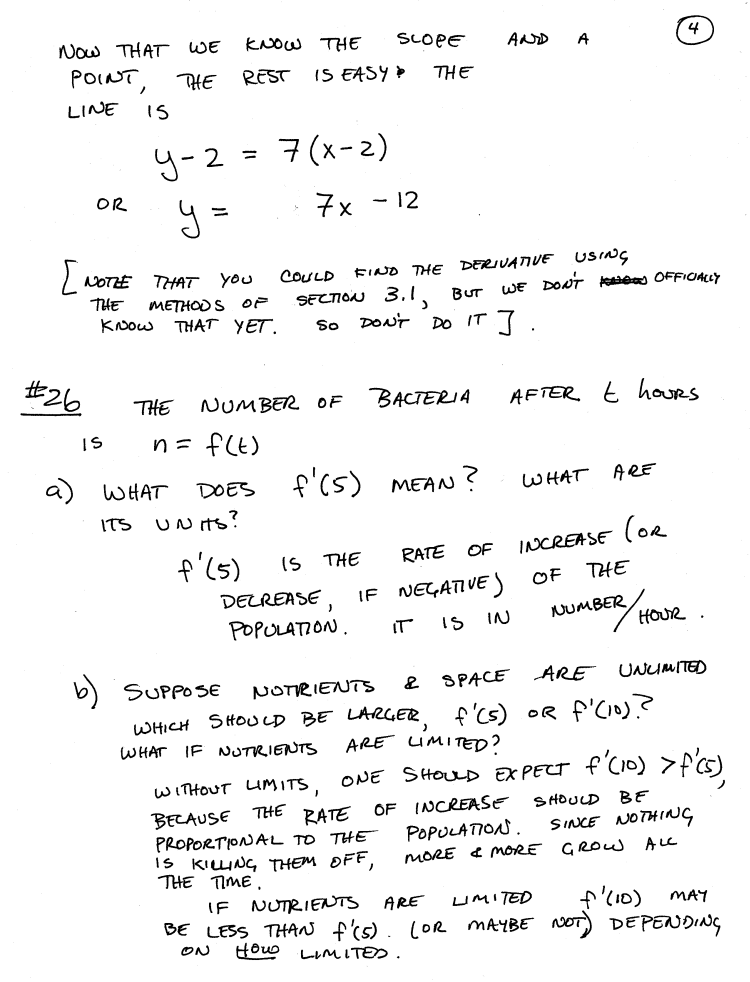 4
NOW THAT WE KNOW THE SLOPE AND A
POINT, THE REST IS EASY. THE
LINE IS
y-2 = 7(x-2)
OR y = 7x -12
[NOTE THAT YOU COULD FIND THE DERIVATIVE USING
THE METHODS OF SECTION 3.1, BUT WE DON'T OFFICIALLY
KNOW THAT YET. SO DON'T DO IT].
#26 THE NUMBER OF BACTERIA AFTER t hours
IS n = f(t)
a) WHAT DOES f'(5) MEAN? WHAT ARE
ITS UNITS?
f'(5) IS THE RATE OF INCREASE (OR
DECREASE, IF NEGATIVE) OF THE
POPULATION. IT IS IN NUMBER/HOUR.
b) SUPPOSE NUTRIENTS & SPACE ARE UNLIMITED
WHICH SHOULD BE LARGER, f'(5) OR f'(10)?
WHAT IF NUTRIENTS ARE LIMITED?
WITHOUT LIMITS, ONE SHOULD EXPECT f'(10) > f'(5),
BECAUSE THE RATE OF INCREASE SHOULD BE
PROPORTIONAL TO THE POPULATION. SINCE NOTHING
IS KILLING THEM OFF, MORE & MORE GROW ALL
THE TIME.
IF NUTRIENTS ARE LIMITED f'(10) MAY
BE LESS THAN f'(5). (OR MAYBE NOT) DEPENDING
ON HOW LIMITED.